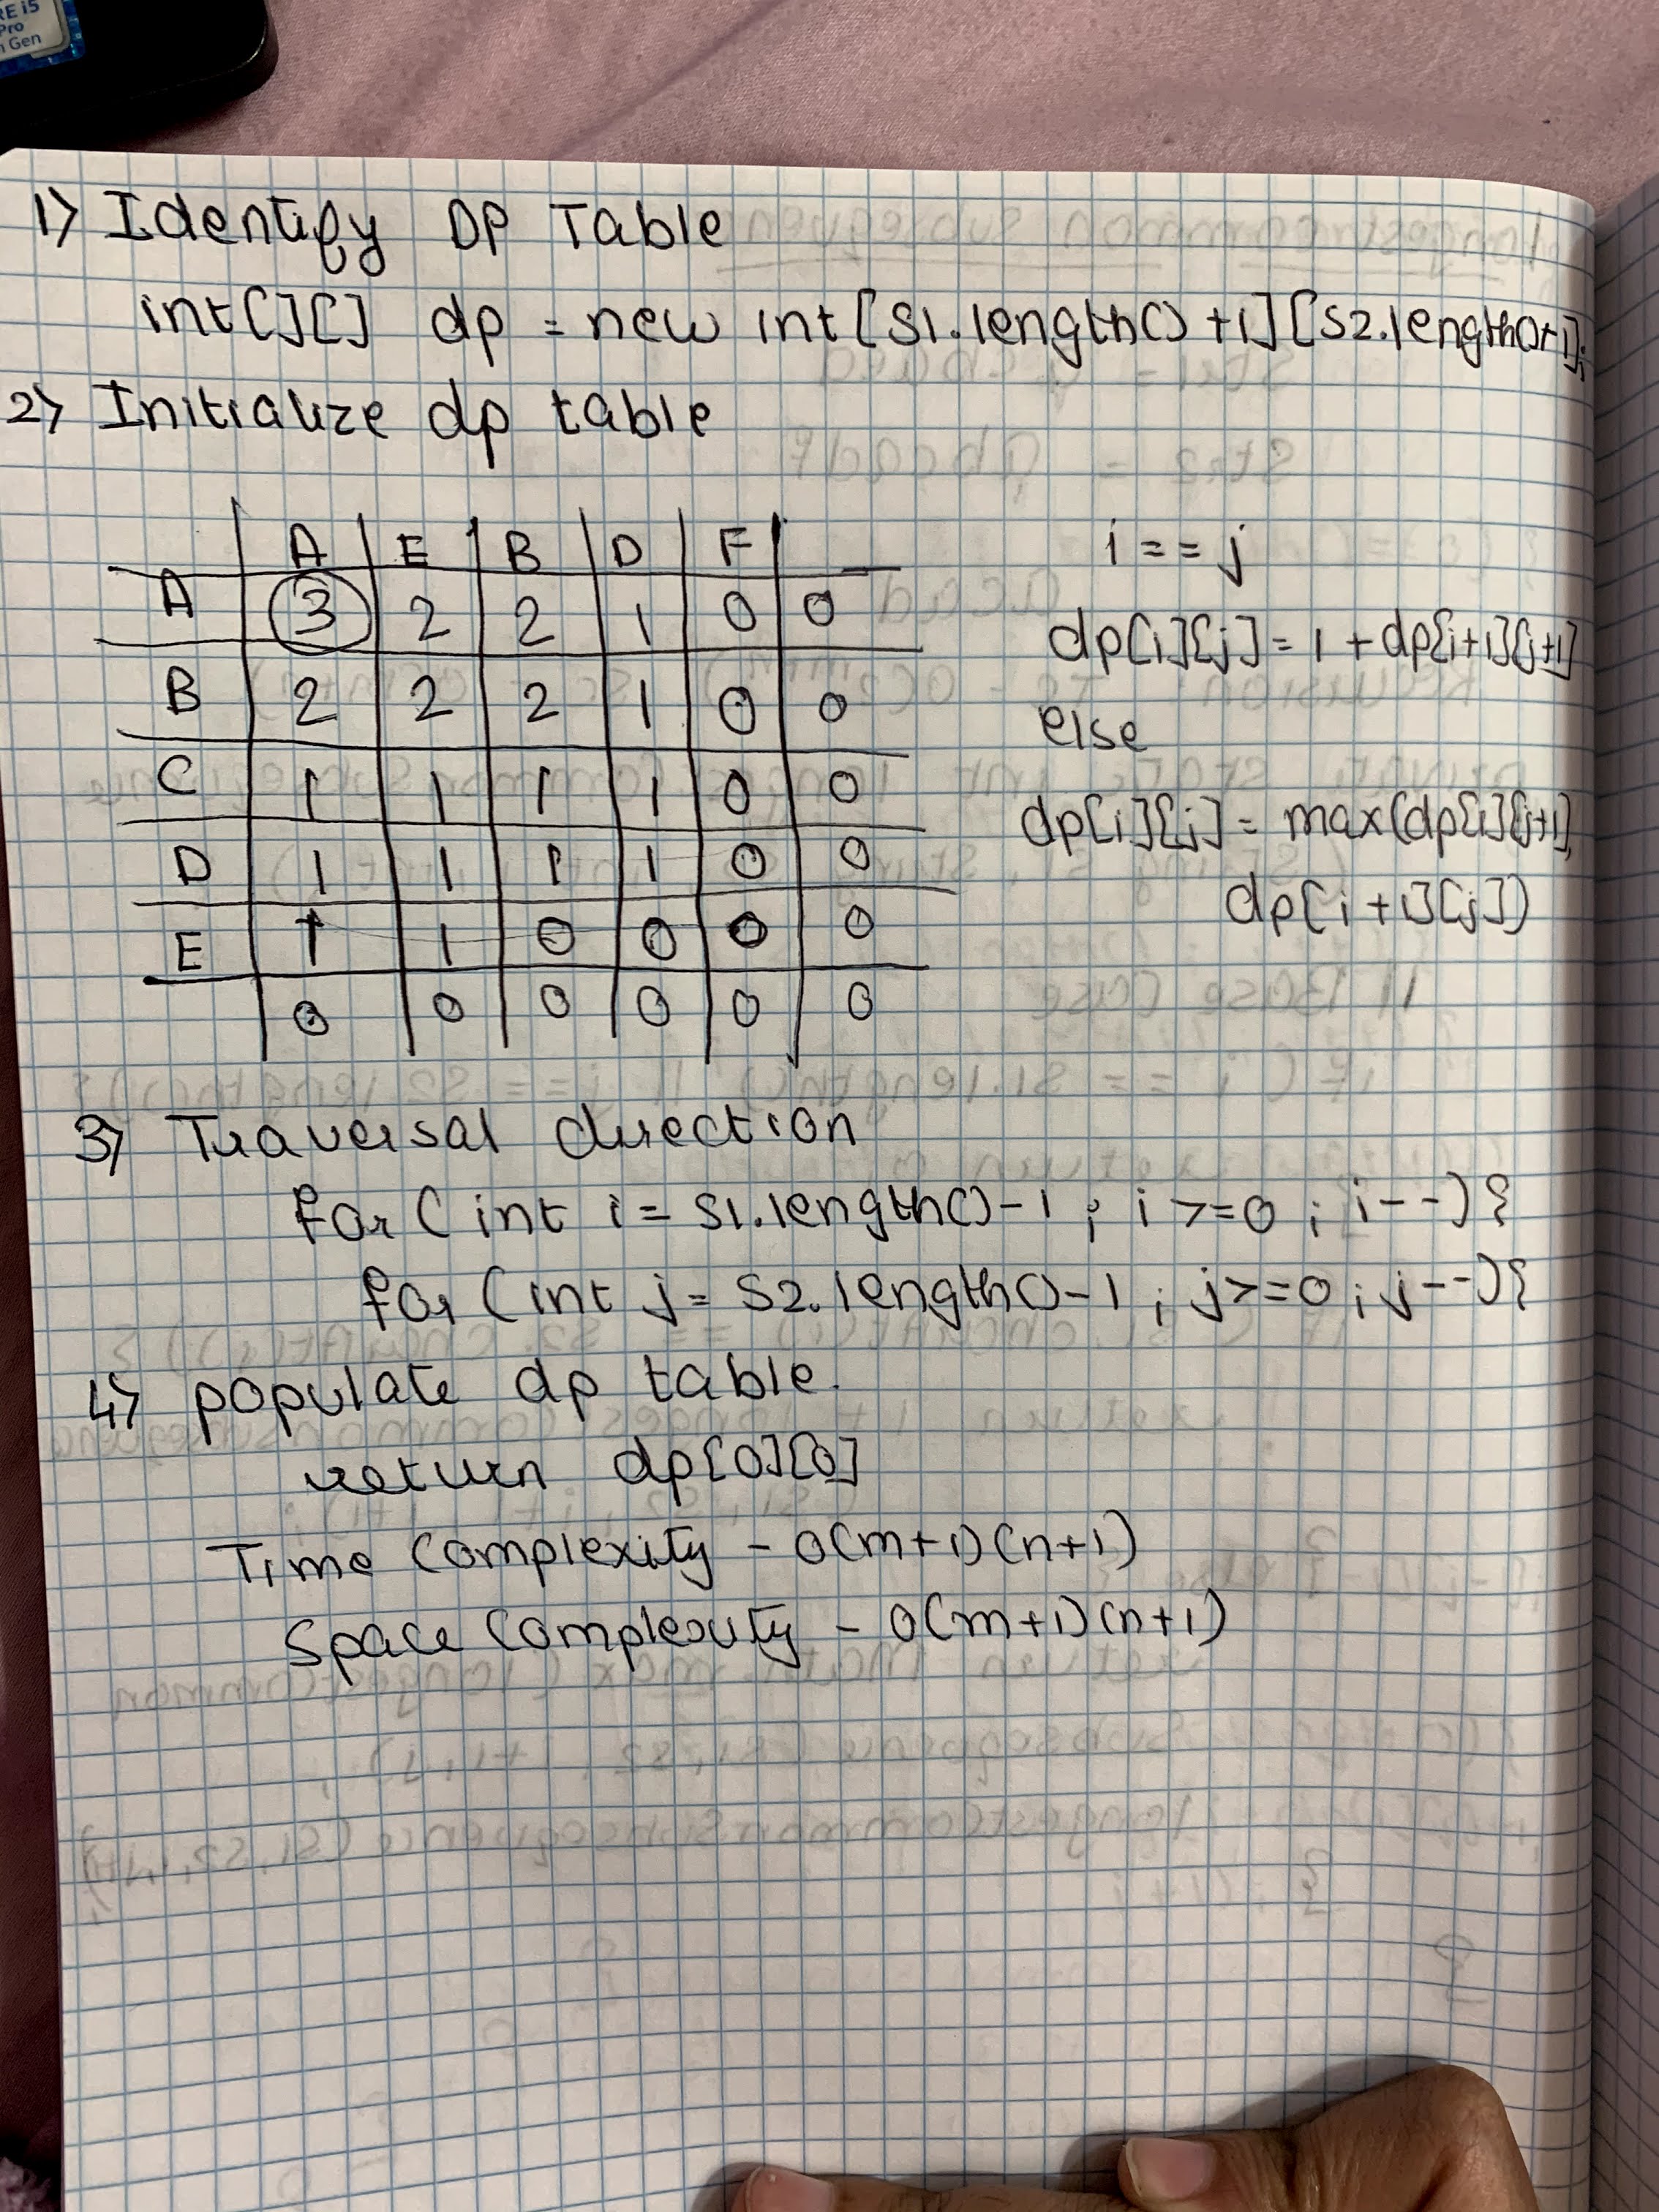 RE i5
Pro
Gen
1) Identify DP Table
int[][] dp = new int[S1.length() +1][S2.length()+1];
2) Initialize dp table
A E B D F
A 3 2 2 1 0 0
B 2 2 2 1 0 0
C 1 1 1 1 0 0
D 1 1 1 1 0 0
E 1 1 0 0 0 0
0 0 0 0 0 0
i == j
dp[i][j] = 1 + dp[i+1][j+1]
else
dp[i][j] = max(dp[i][j+1],
dp[i+1][j])
3) Traversal direction
for ( int i = S1.length()-1 ; i >=0 ; i--) {
for ( int j = S2.length()-1 ; j>=0 ; j--) {
4) populate dp table.
return dp[0][0]
Time Complexity - O(m+1)(n+1)
Space Complexity - O(m+1)(n+1)